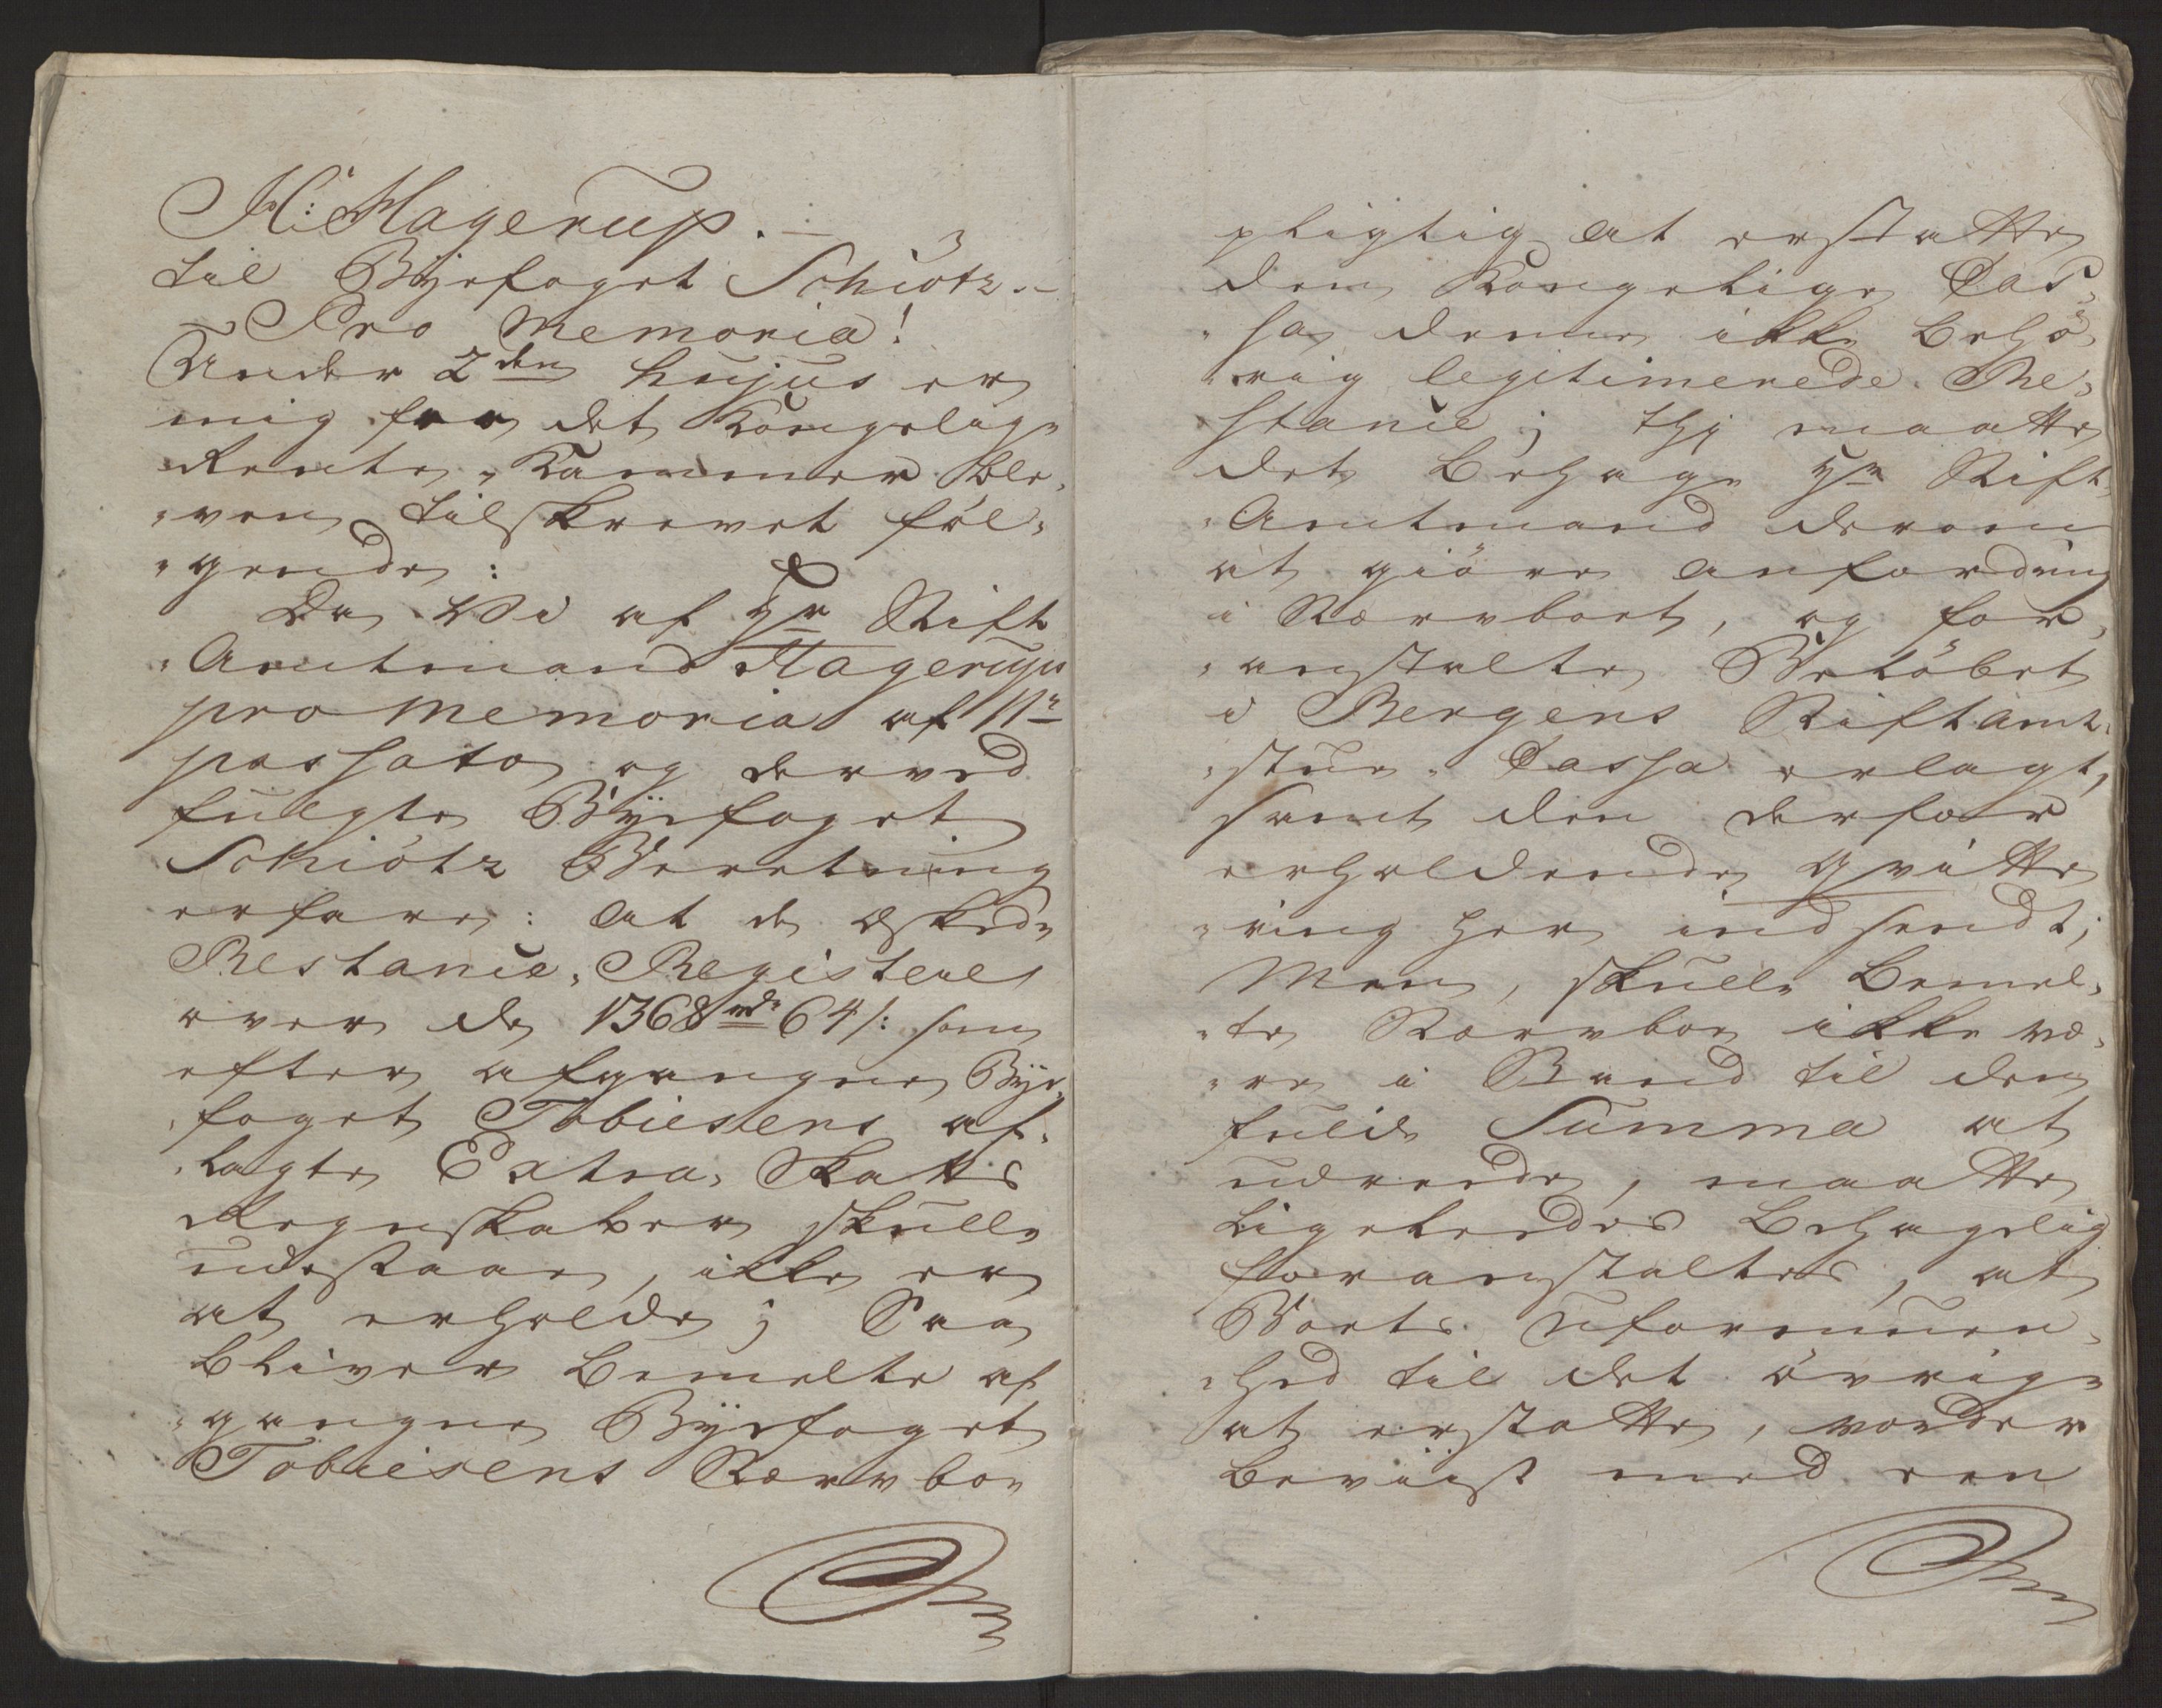 H: Hagerup.
til Byefoget Schiötz.
Pro Memoria!
Under 2den hujus er
mig fra det Kongelige
Rente-Kammer ble-
-ven tilskrevet föl-
-gende:
Da Vi af Hr Stift
-Amtmand Hagerups
pro Memoria af 11te
passato og derved
fulgte Byefoget
Schiötz Beretning
erfare: At de æskede
Restance-Registere
over de 1368 rdr 64 s: som
efter afgangne Bye-
-foget Tobiesens af-
-lagte Extra-Skatts
Regnskaber skulle
udestaae, ikke er
at erholde; Saa
bliver bemelte af-
-gangne Byefoget
Tobiesens Stervboe
pligtig at erstatte
den Kongelige Cas-
-sa denne ikke behö-
-rig legitimerede Re-
stance; thj maatte
det behage Hr Stift-
-Amtmand derom
at giöre Anfording
i Stervboet, og for-
-anstalte Belöbet
i Bergens Stiftamt-
-stue-Cassa erlagt,
samt den derfor
erholdende Qvitte-
-ring her indsendt;
Men, skulle bemel-
-te Stervboe ikke væ-
-re i Stand til den
fulde Summa at
udreede, maatte
ligeledes behagelig
foranstaltes, at
Boets Uformuen-
-hed til det övrige
at erstatte, vorder
beviist med een